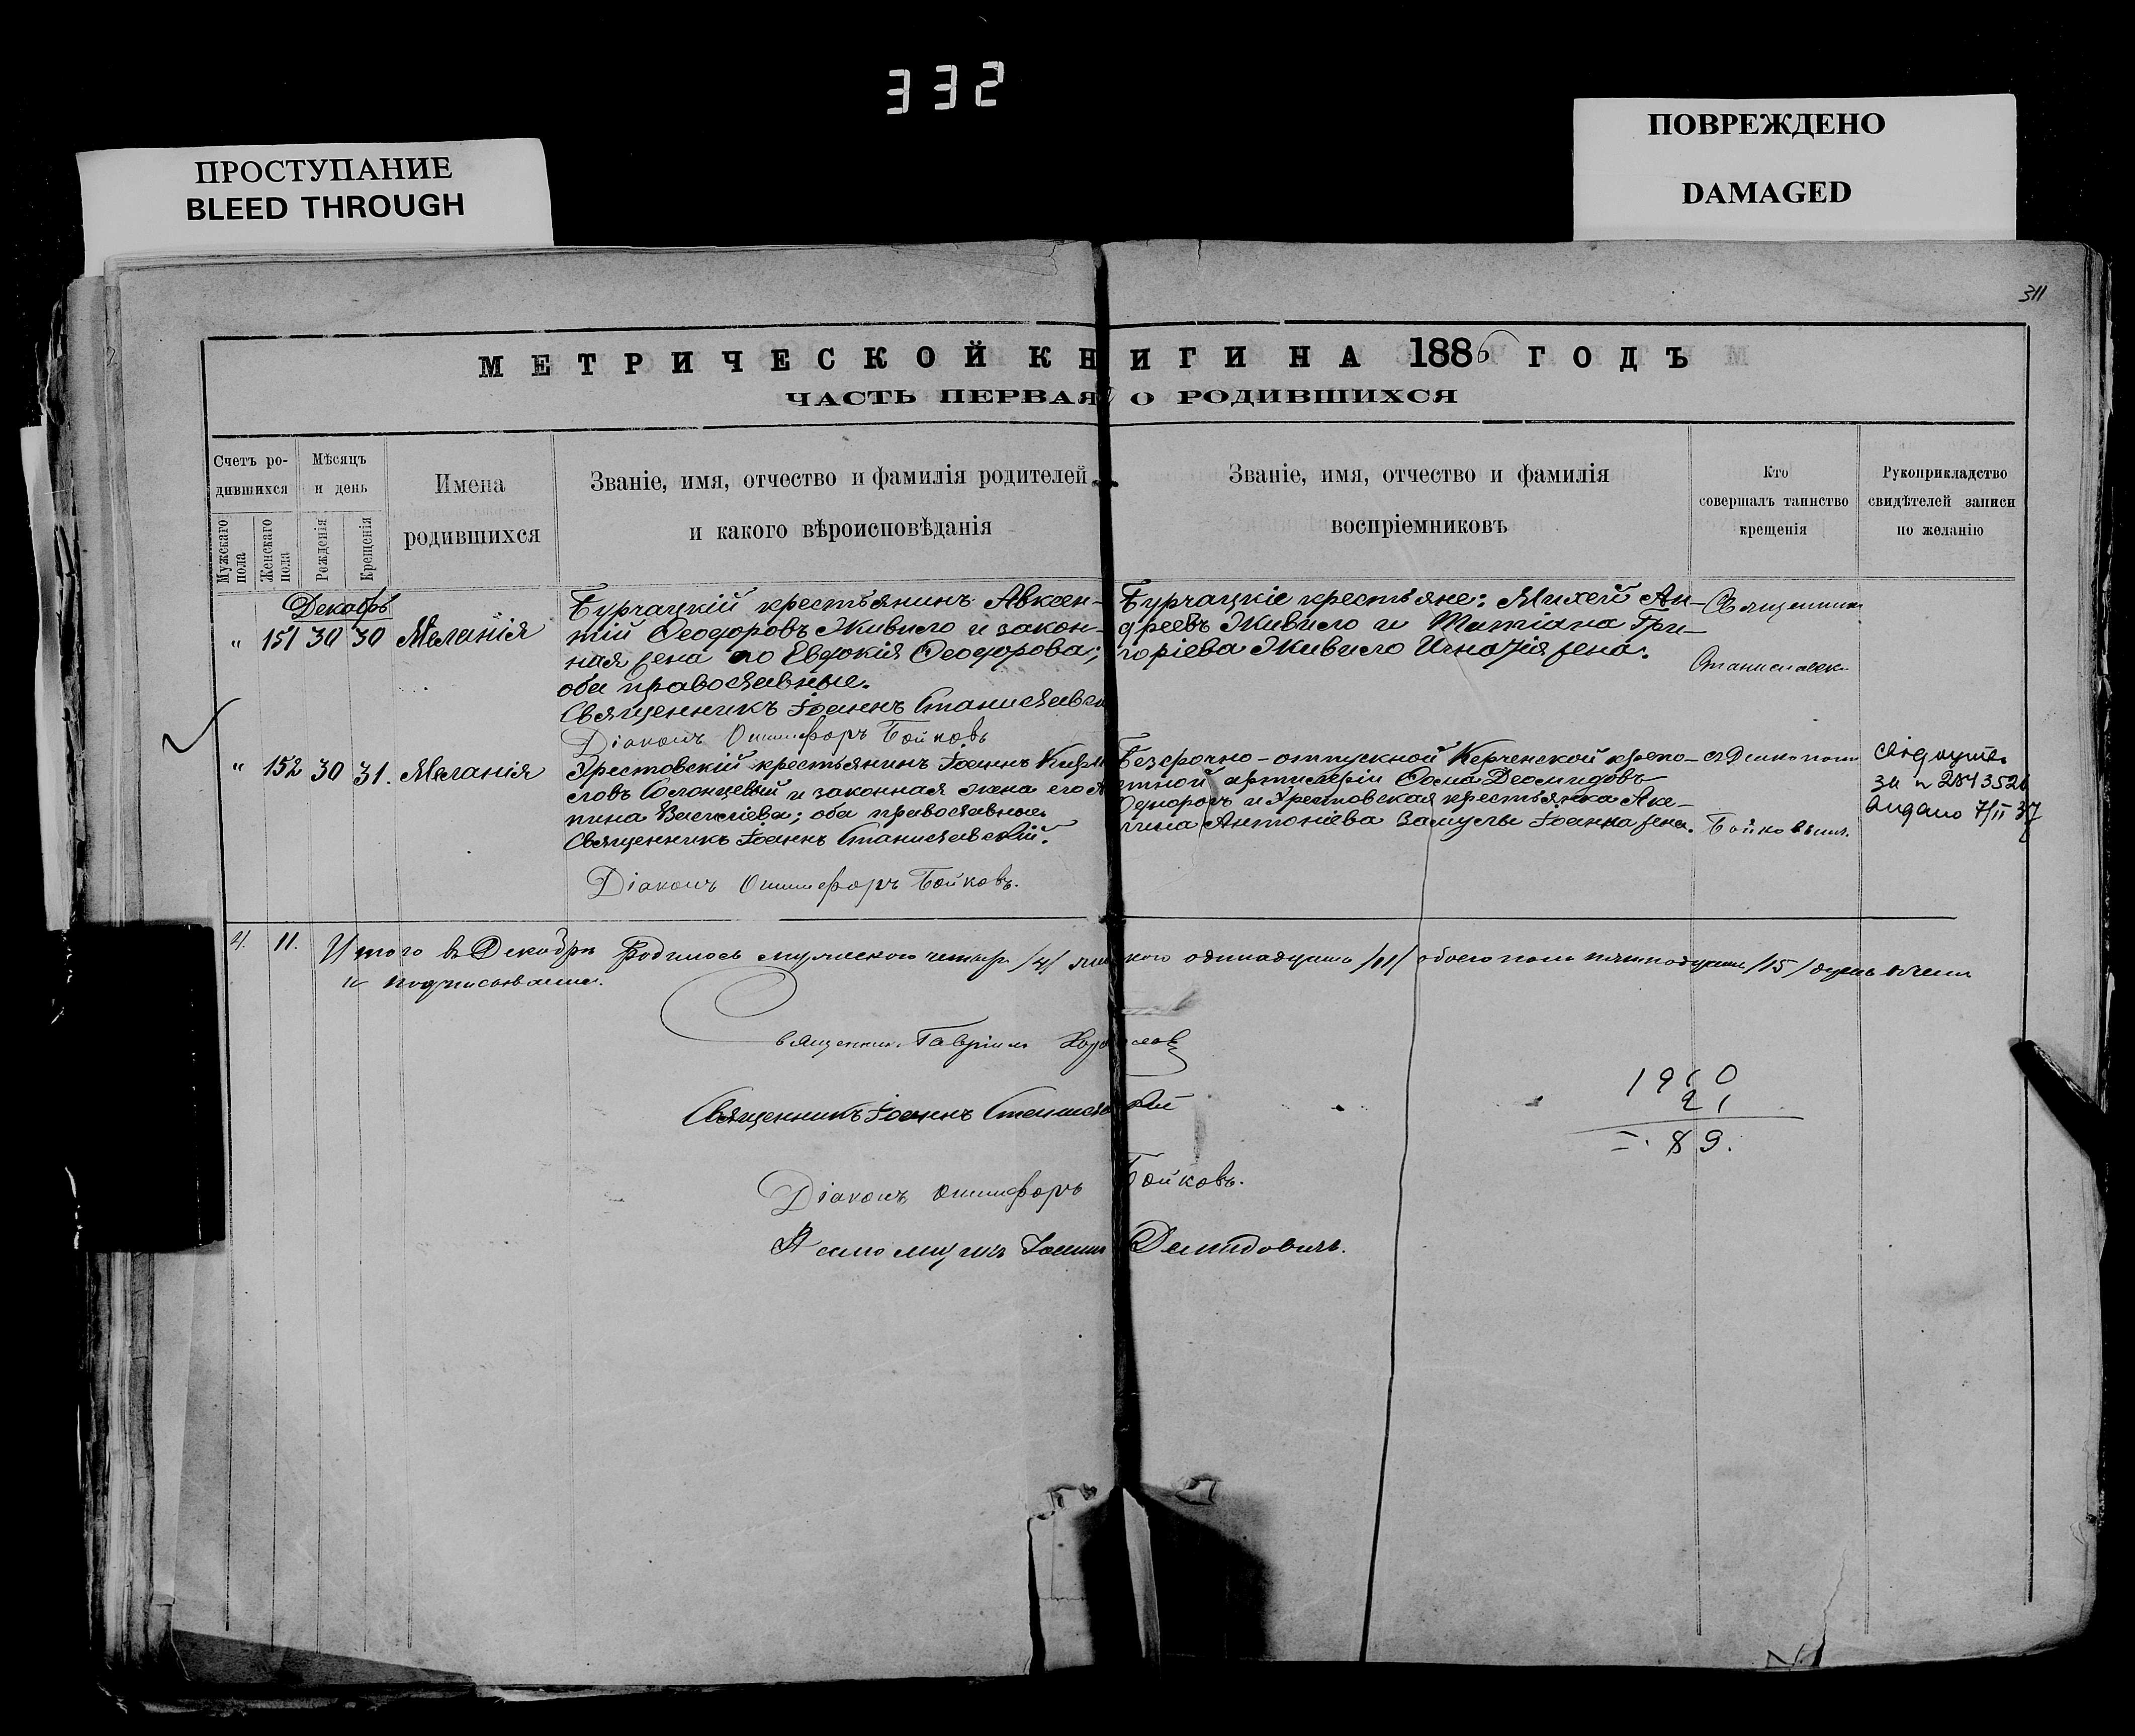 332
ПРОСТУПАНИЕ
BLEED THROUGH
ПОВРЕЖДЕНО
DAMAGED
311
МЕТРИЧЕСКОЙ КНИГИ НА 1886 ГОДЪ
ЧАСТЬ ПЕРВАЯ, О РОДИВШИХСЯ
Счетъ родившихся
Мужскаго пола
Женскаго пола
Мѣсяцъ и день
Рожденія
Крещенія
Имена родившихся
Званіе, имя, отчество и фамилія родителей
и какого вѣроисповѣданія
Званіе, имя, отчество и фамилія
воспріемниковъ
Кто
совершалъ таинство
крещенія
Рукоприкладство
свидѣтелей записи
по желанію
Декабрь
" 151 30 30 Меланія
Бурчацкій крестьянинъ Авксен-
тій Ѳеодоровъ Живило и закон-
ная жена его Евдокія Ѳеодорова;
оба православные.
Священникъ Іоаннъ Станиславск
Діаконъ Онисифоръ Бойковъ
Бурчацкіе крестьяне: Михей Ан-
дреевъ Живило и Татіана Гри-
горіева Живило Игнатія жена.
Священникъ
Станиславск
" 152 30 31. Меланія
крестьянинъ Іоаннъ
и законная жена его
Василіева; оба православные
Священникъ Іоаннъ Станиславскій.
Діаконъ Онисифоръ Бойковъ.
Безсрочно-отпускной Керченской крѣпо-
стной артилеріи Ѳома Деомидовъ
и крестьянка Аке-
Антоніева Іоанна жена.
съ Діакономъ
Бойковымъ.
Выдано 7/II 37
4. 11. Итого въ Декабрѣ родилось мужескаго четыре /4/ женскаго одинадцать /11/ обоего пола пятнадцать /15/
и подписываемъ.
Священникъ Гавріилъ
Священникъ Іоаннъ Станиславскій
Діаконъ Онисифоръ Бойковъ.
Псаломщикъ Іоаннъ Демидовичъ.
1910
21
89.